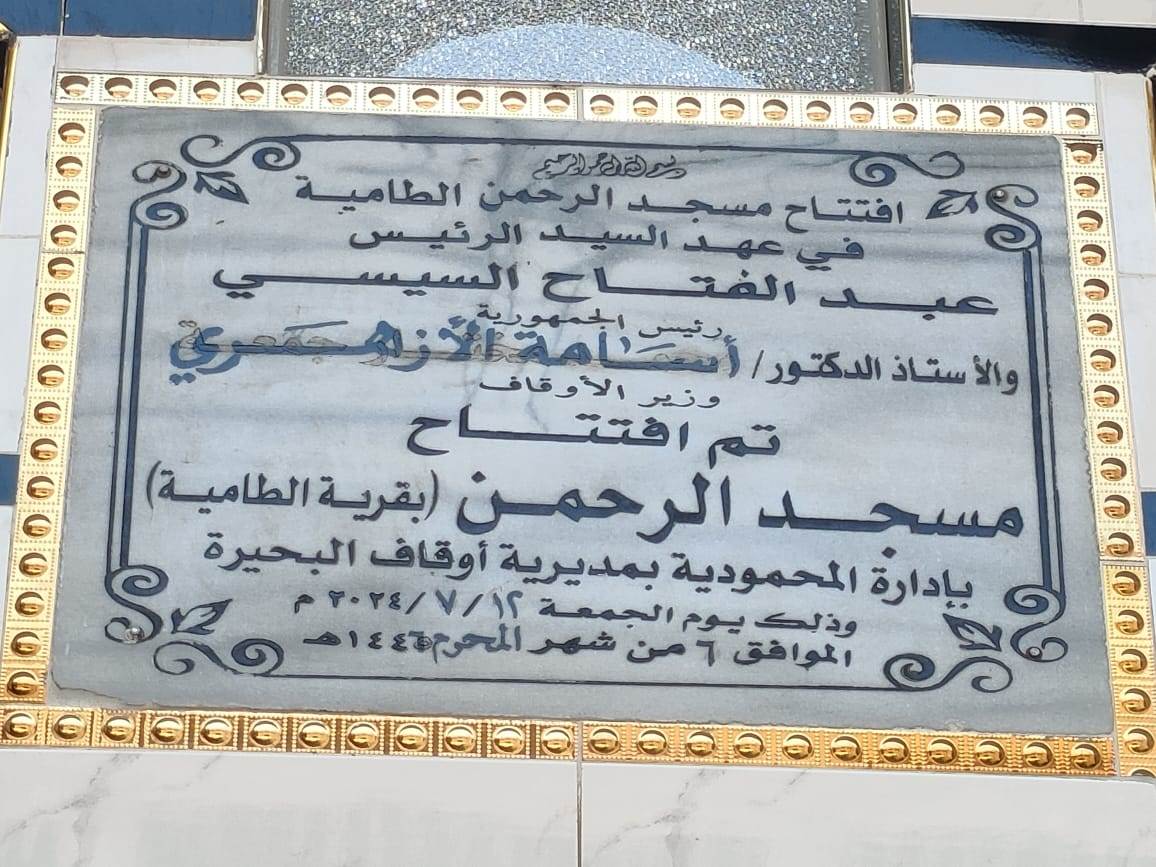 بسم الله الرحمن الرحيم
افتتاح مسجد الرحمن الطامية
في عهد السيد الرئيس
عبد الفتاح السيسي
رئيس الجمهورية
والأستاذ الدكتور/ أسامة الأزهري
وزير الأوقاف
تم افتتاح
مسجد الرحمن (بقرية الطامية)
بإدارة المحمودية بمديرية أوقاف البحيرة
وذلك يوم الجمعة ١٢/ ٧/ ٢٠٢٤ م
الموافق ٦ من شهر المحرم ١٤٤٦هـ